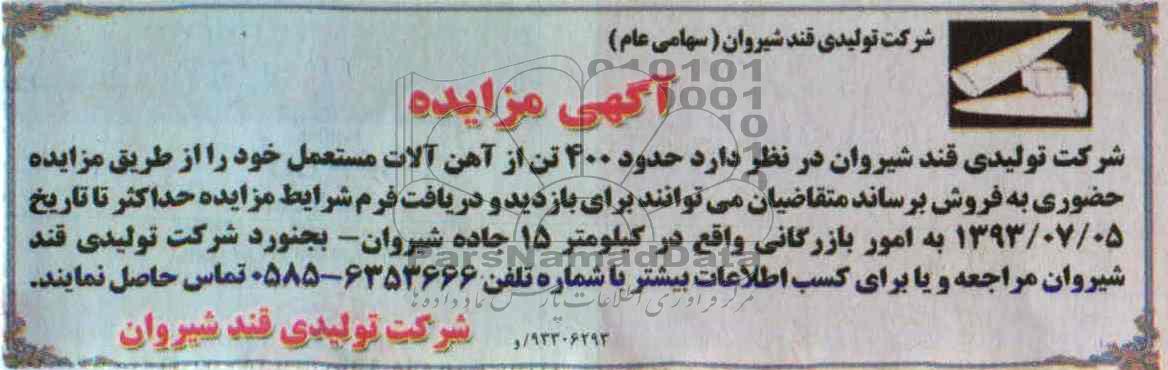 شرکت تولیدی قند شیروان ( سهامی عام )
آگهی مزایده
شرکت تولیدی قند شیروان در نظر دارد حدود ۴۰۰ تن از آهن آلات مستعمل خود را از طریق مزایده
حضوری به فروش برساند متقاضیان می توانند برای بازدید و دریافت فرم شرایط مزایده حداکثر تا تاریخ
۱۳۹۳/۰۷/۰۵ به امور بازرگانی واقع در کیلومتر ۱۵ جاده شیروان- بجنورد شرکت تولیدی قند
ParsNamadData
شیروان مراجعه و یا برای کسب اطلاعات بیشتر با شماره تلفن ۶۳۵۳۶۶۶-۰۵۸۵ تماس حاصل نمایند.
مرکز فرآوری اطلاعات پارس نماد داده ها
شرکت تولیدی قند شیروان
۹۳۳۰۶۲۹۳/و